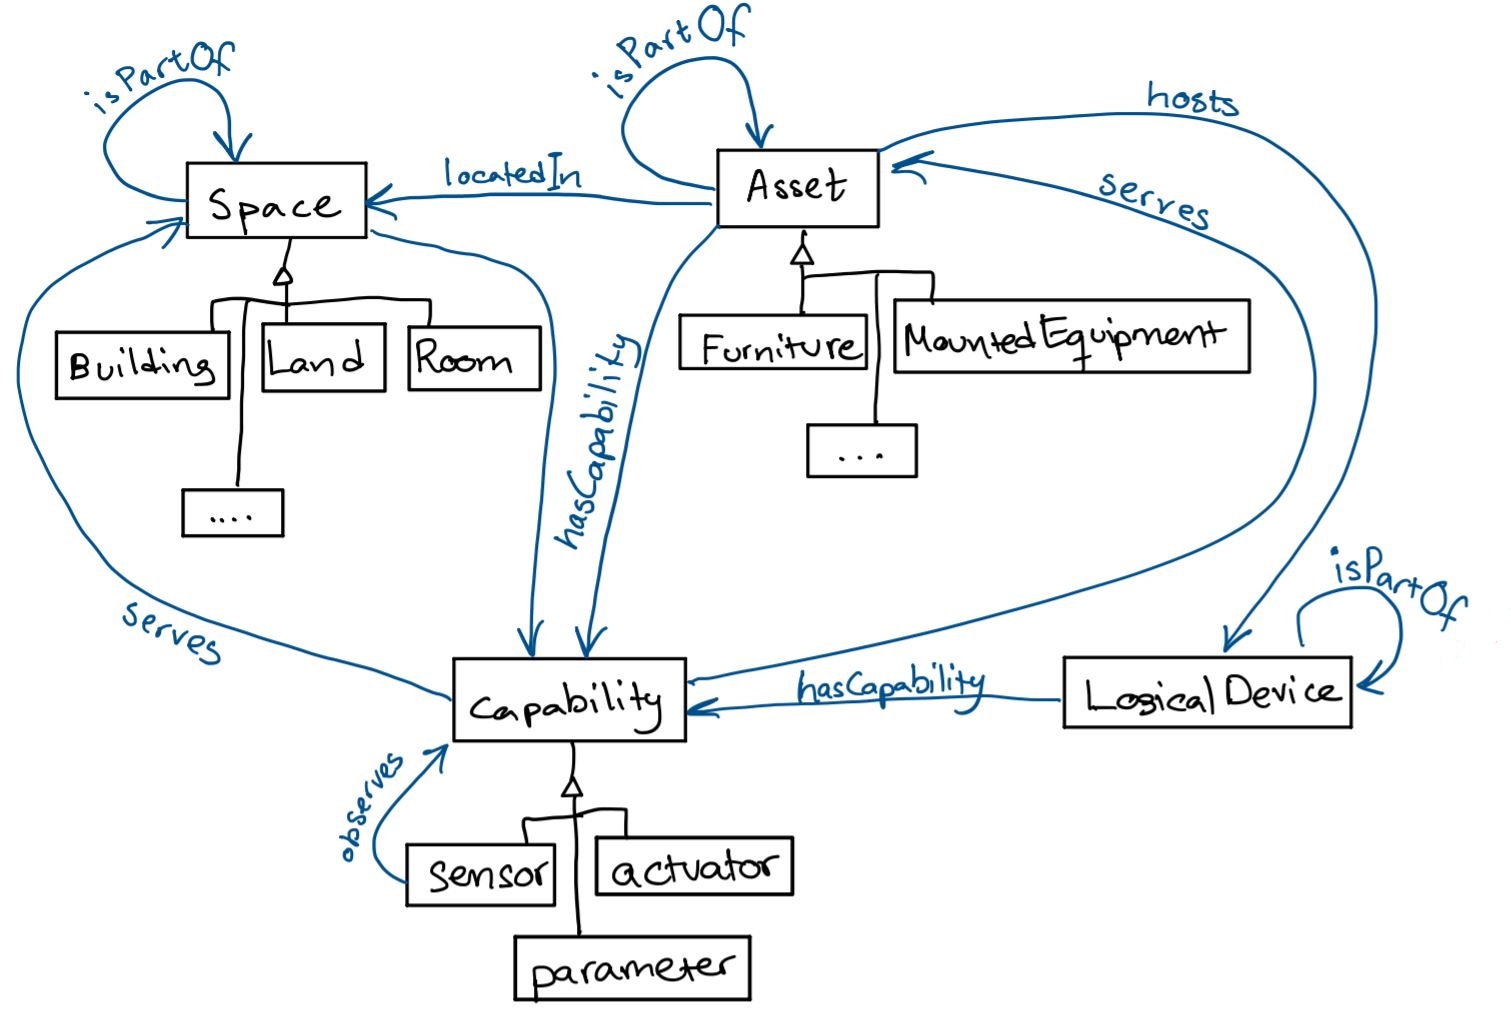 isPartOf
isPartOf
hosts
locatedIn
serves
Space
Asset
Building
Land
Room
Furniture
MountedEquipment
hasCapability
...
....
serves
isPartOf
capability
hasCapability
Logical Device
observes
sensor
actuator
parameter